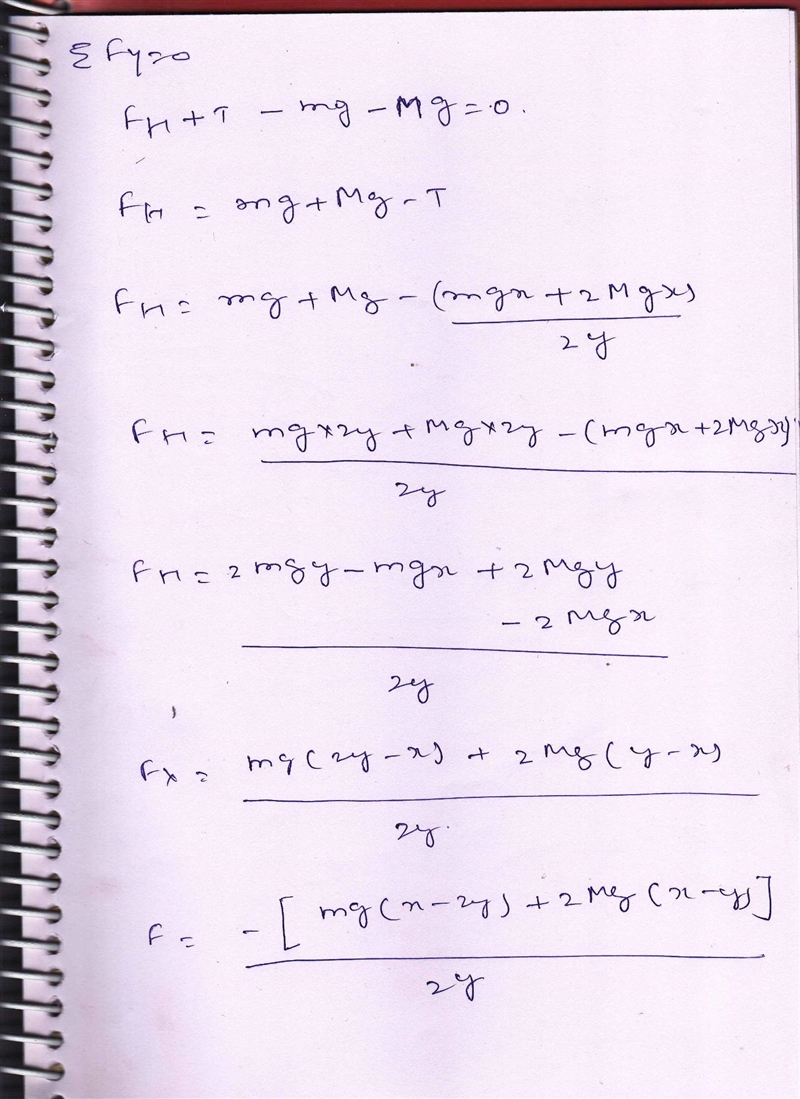 ΣFy=0
FH + T - mg - Mg = 0.
FH = mg + Mg - T
FH = mg + Mg - (mgx + 2Mgx)
2y
FH = mg×2y + Mg×2y - (mgx + 2Mgx)
2y
FH = 2mgy - mgx + 2Mgy
- 2Mgx
2y
Fx = mg(2y-x) + 2Mg(y-x)
2y.
F = -[mg(x-2y) + 2Mg(x-y)]
2y